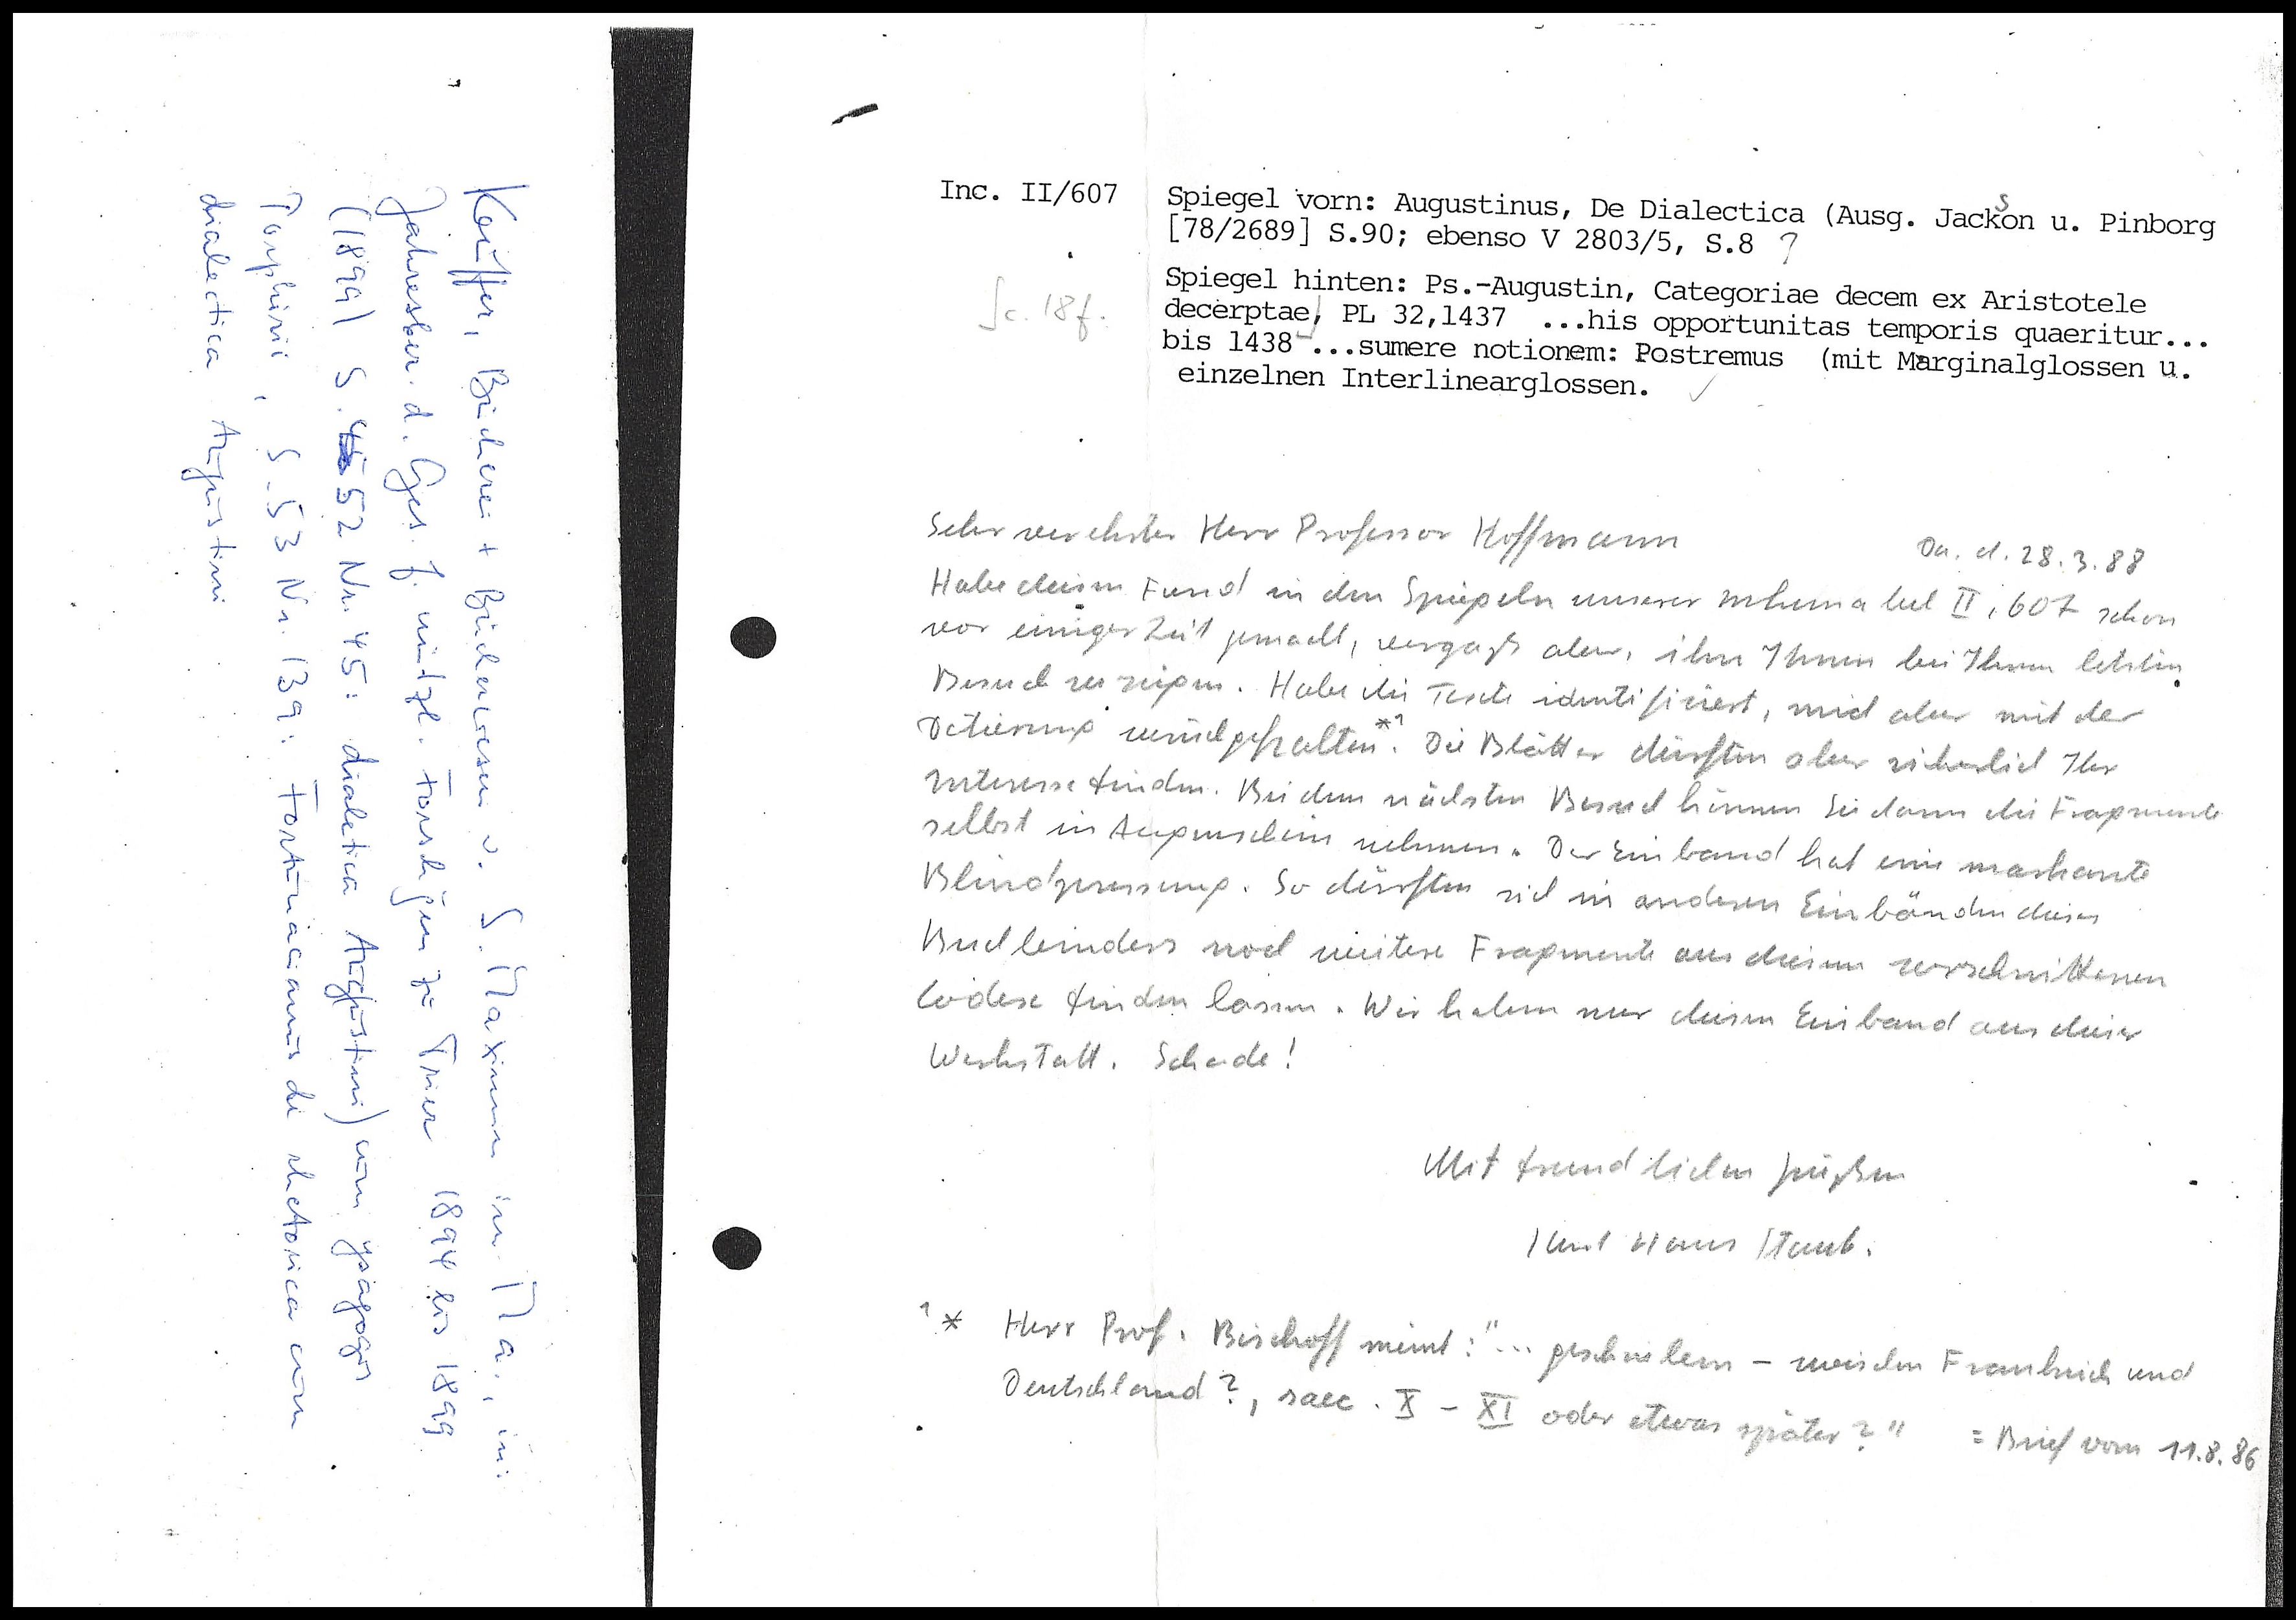 Keuffer, Bücherei + Bücherwesen v. S. Maximin im Ma., in:
Jahresber. d. Ges. f. nützl. Forschgen zu Trier 1894 bis 1899
(1899) S. 52 Nr. 45: dialetica Augustini) cum ysagogis
Porphirii, S. 53 Nr. 139: Fortunacianus de rhetorica cum
dialectica Augustini
Inc. II/607 Spiegel vorn: Augustinus, De Dialectica (Ausg. Jackson u. Pinborg
[78/2689] S.90; ebenso V 2803/5, S.8 ?
Spiegel hinten: Ps.-Augustin, Categoriae decem ex Aristotele
c. 18f. decerptae, PL 32,1437 ...his opportunitas temporis quaeritur...
bis 1438 ...sumere notionem: Postremus (mit Marginalglossen u.
einzelnen Interlinearglossen. ✓
Sehr verehrter Herr Professor Hoffmann Da. d. 28.3.88
Habe diesen Fund in den Spiegeln unserer Inkunabel II, 607 schon
vor einiger Zeit gemacht, vergaß aber, ihn Ihnen bei Ihrem letzten
Besuch zu zeigen. Habe die Texte identifiziert, mich aber mit der
Datierung zurückgehalten*¹. Die Blätter dürften aber sicherlich Ihr
Interesse finden. Bei dem nächsten Besuch können Sie dann die Fragmente
selbst in Augenschein nehmen. Der Einband hat eine markante
Blindpressung. So dürften sich in anderen Einbänden dieses
Buchbinders noch weitere Fragmente aus diesem zerschnittenen
Codex finden lassen. Wir haben nur diesen Einband aus dieser
Werkstatt. Schade!
Mit freundlichen Grüßen
Kurt Hans Staub.
¹* Herr Prof. Bischoff meint: "... geschrieben – zwischen Frankreich und
Deutschland?, saec. X – XI oder etwas später?" = Brief vom 11.8.86